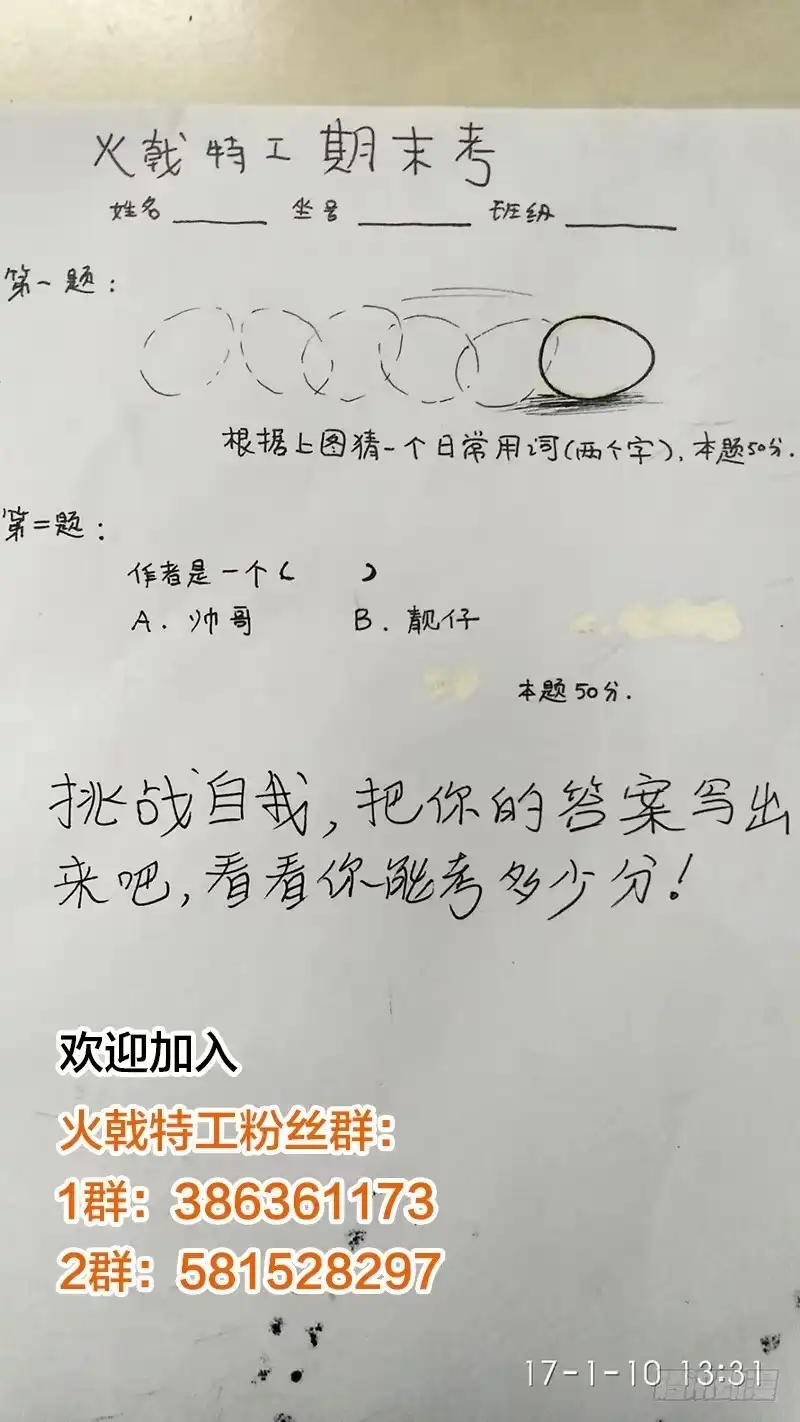 火戟特工期末考
姓名 ______ 坐号 ______ 班级 ______
第一题：
根据上图猜一个日常用词(两个字)，本题50分.
第二题：
作者是一个(　　)
A. 帅哥　　B. 靓仔
本题50分.
挑战自我，把你的答案写出
来吧，看看你能考多少分！
欢迎加入
火戟特工粉丝群：
1群：386361173
2群：581528297
17-1-10 13:31